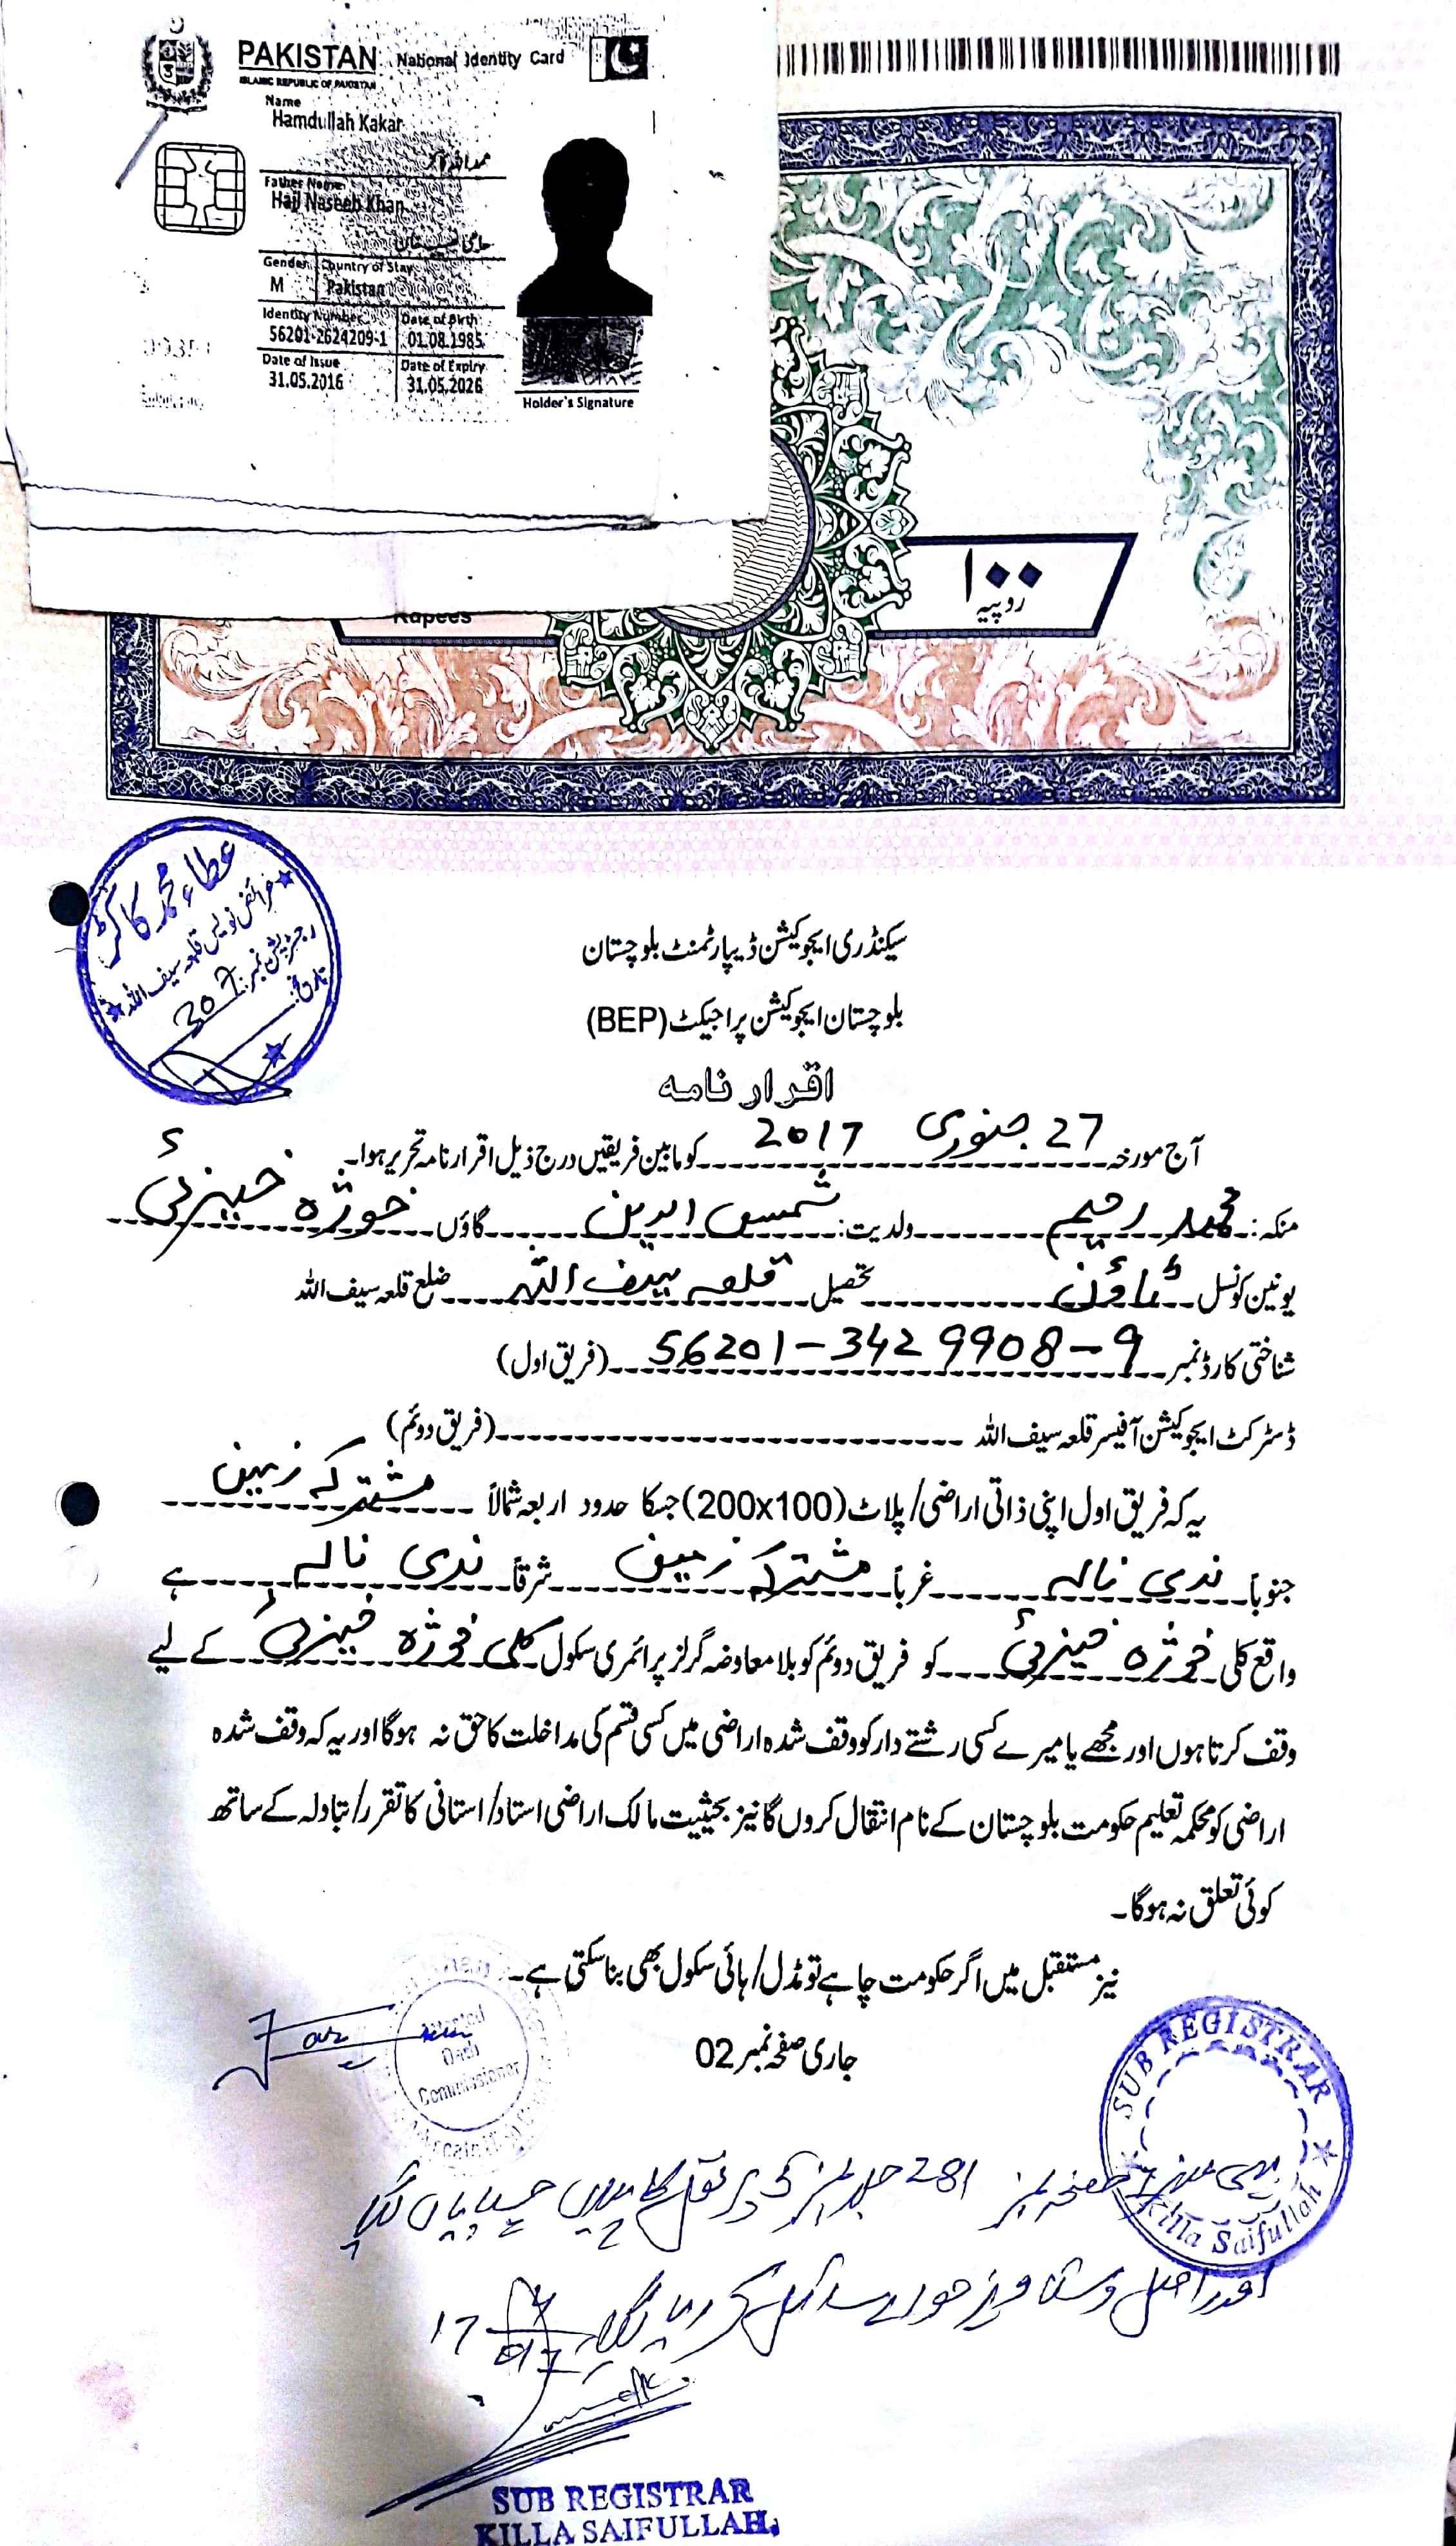 PAKISTAN National Identity Card
ISLAMIC REPUBLIC OF PAKISTAN
Name
Hamdullah Kakar
Father Name
Haji Naseeb Khan
Gender Country of Stay
M Pakistan
Identity Number Date of Birth
56201-2624209-1 01.08.1985
Date of Issue Date of Expiry
31.05.2016 31.05.2026
Holder's Signature
۱۰۰
روپیہ
Rupees
عطاء محمد کاکڑ
عرائض نویس قلعہ سیف اللہ
رجسٹریشن نمبر: 307
تاریخ:
سیکنڈری ایجوکیشن ڈیپارٹمنٹ بلوچستان
بلوچستان ایجوکیشن پراجیکٹ (BEP)
اقرار نامہ
آج مورخہ 27 جنوری 2017 کو مابین فریقین درج ذیل اقرار نامہ تحریر ہوا۔
منکہ: محمد رحیم ولدیت: شمس الدین گاؤں خوژہ خیزئی
یونین کونسل ٹاؤن تحصیل قلعہ سیف اللہ ضلع قلعہ سیف اللہ
شناختی کارڈ نمبر 56201-3429908-9 (فریق اول)
ڈسٹرکٹ ایجوکیشن آفیسر قلعہ سیف اللہ (فریق دوئم)
یہ کہ فریق اول اپنی ذاتی اراضی/پلاٹ (200x100) جسکا حدود اربعہ شمالاً مشترکہ زمین
جنوباً ندی نالہ غرباً مشترکہ زمین شرقاً ندی نالہ ہے
واقع کلی خوژہ خیزئی کو فریق دوئم کو بلا معاوضہ گرلز پرائمری سکول کلی خوژہ خیزئی کے لیے
وقف کرتا ہوں اور مجھے یا میرے کسی رشتے دار کو وقف شدہ اراضی میں کسی قسم کی مداخلت کا حق نہ ہوگا اور یہ کہ وقف شدہ
اراضی کو محکمہ تعلیم حکومت بلوچستان کے نام انتقال کروں گا نیز بحیثیت مالک اراضی استاد/استانی کا تقرر/تبادلہ کے ساتھ
کوئی تعلق نہ ہوگا۔
نیز مستقبل میں اگر حکومت چاہے تو مڈل/ہائی سکول بھی بنا سکتی ہے۔
جاری صفحہ نمبر 02
Attested
Oath
Commissioner
SUB REGISTRAR
Killa Saifullah
صفحہ نمبر 281 جلد نمبر 5 پر نقل چسپاں کیا گیا
اور اصل دستاویز حوالے سائل کر دیا گیا
17
SUB REGISTRAR
KILLA SAIFULLAH.